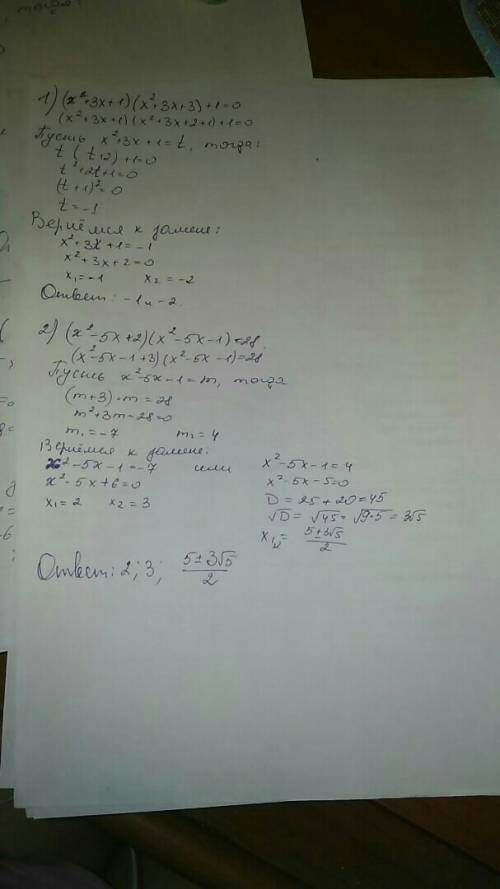 1) (x²+3x+1)(x²+3x+3)+1=0
(x²+3x+1)(x²+3x+2+1)+1=0
Пусть x²+3x+1=t, тогда:
t(t+2)+1=0
t²+2t+1=0
(t+1)²=0
t=-1
Вернёмся к замене:
x²+3x+1=-1
x²+3x+2=0
x₁=-1 x₂=-2
Ответ: -1 и -2.
2) (x²-5x+2)(x²-5x-1)=28
(x²-5x-1+3)(x²-5x-1)=28
Пусть x²-5x-1=m, тогда
(m+3)·m=28
m²+3m-28=0
m₁=-7 m₂=4
Вернёмся к замене:
x²-5x-1=-7 или x²-5x-1=4
x²-5x+6=0 x²-5x-5=0
x₁=2 x₂=3 D=25+20=45
√D=√45=√9·5=3√5
x₁,₂=(5±3√5)/2
Ответ: 2; 3; (5±3√5)/2